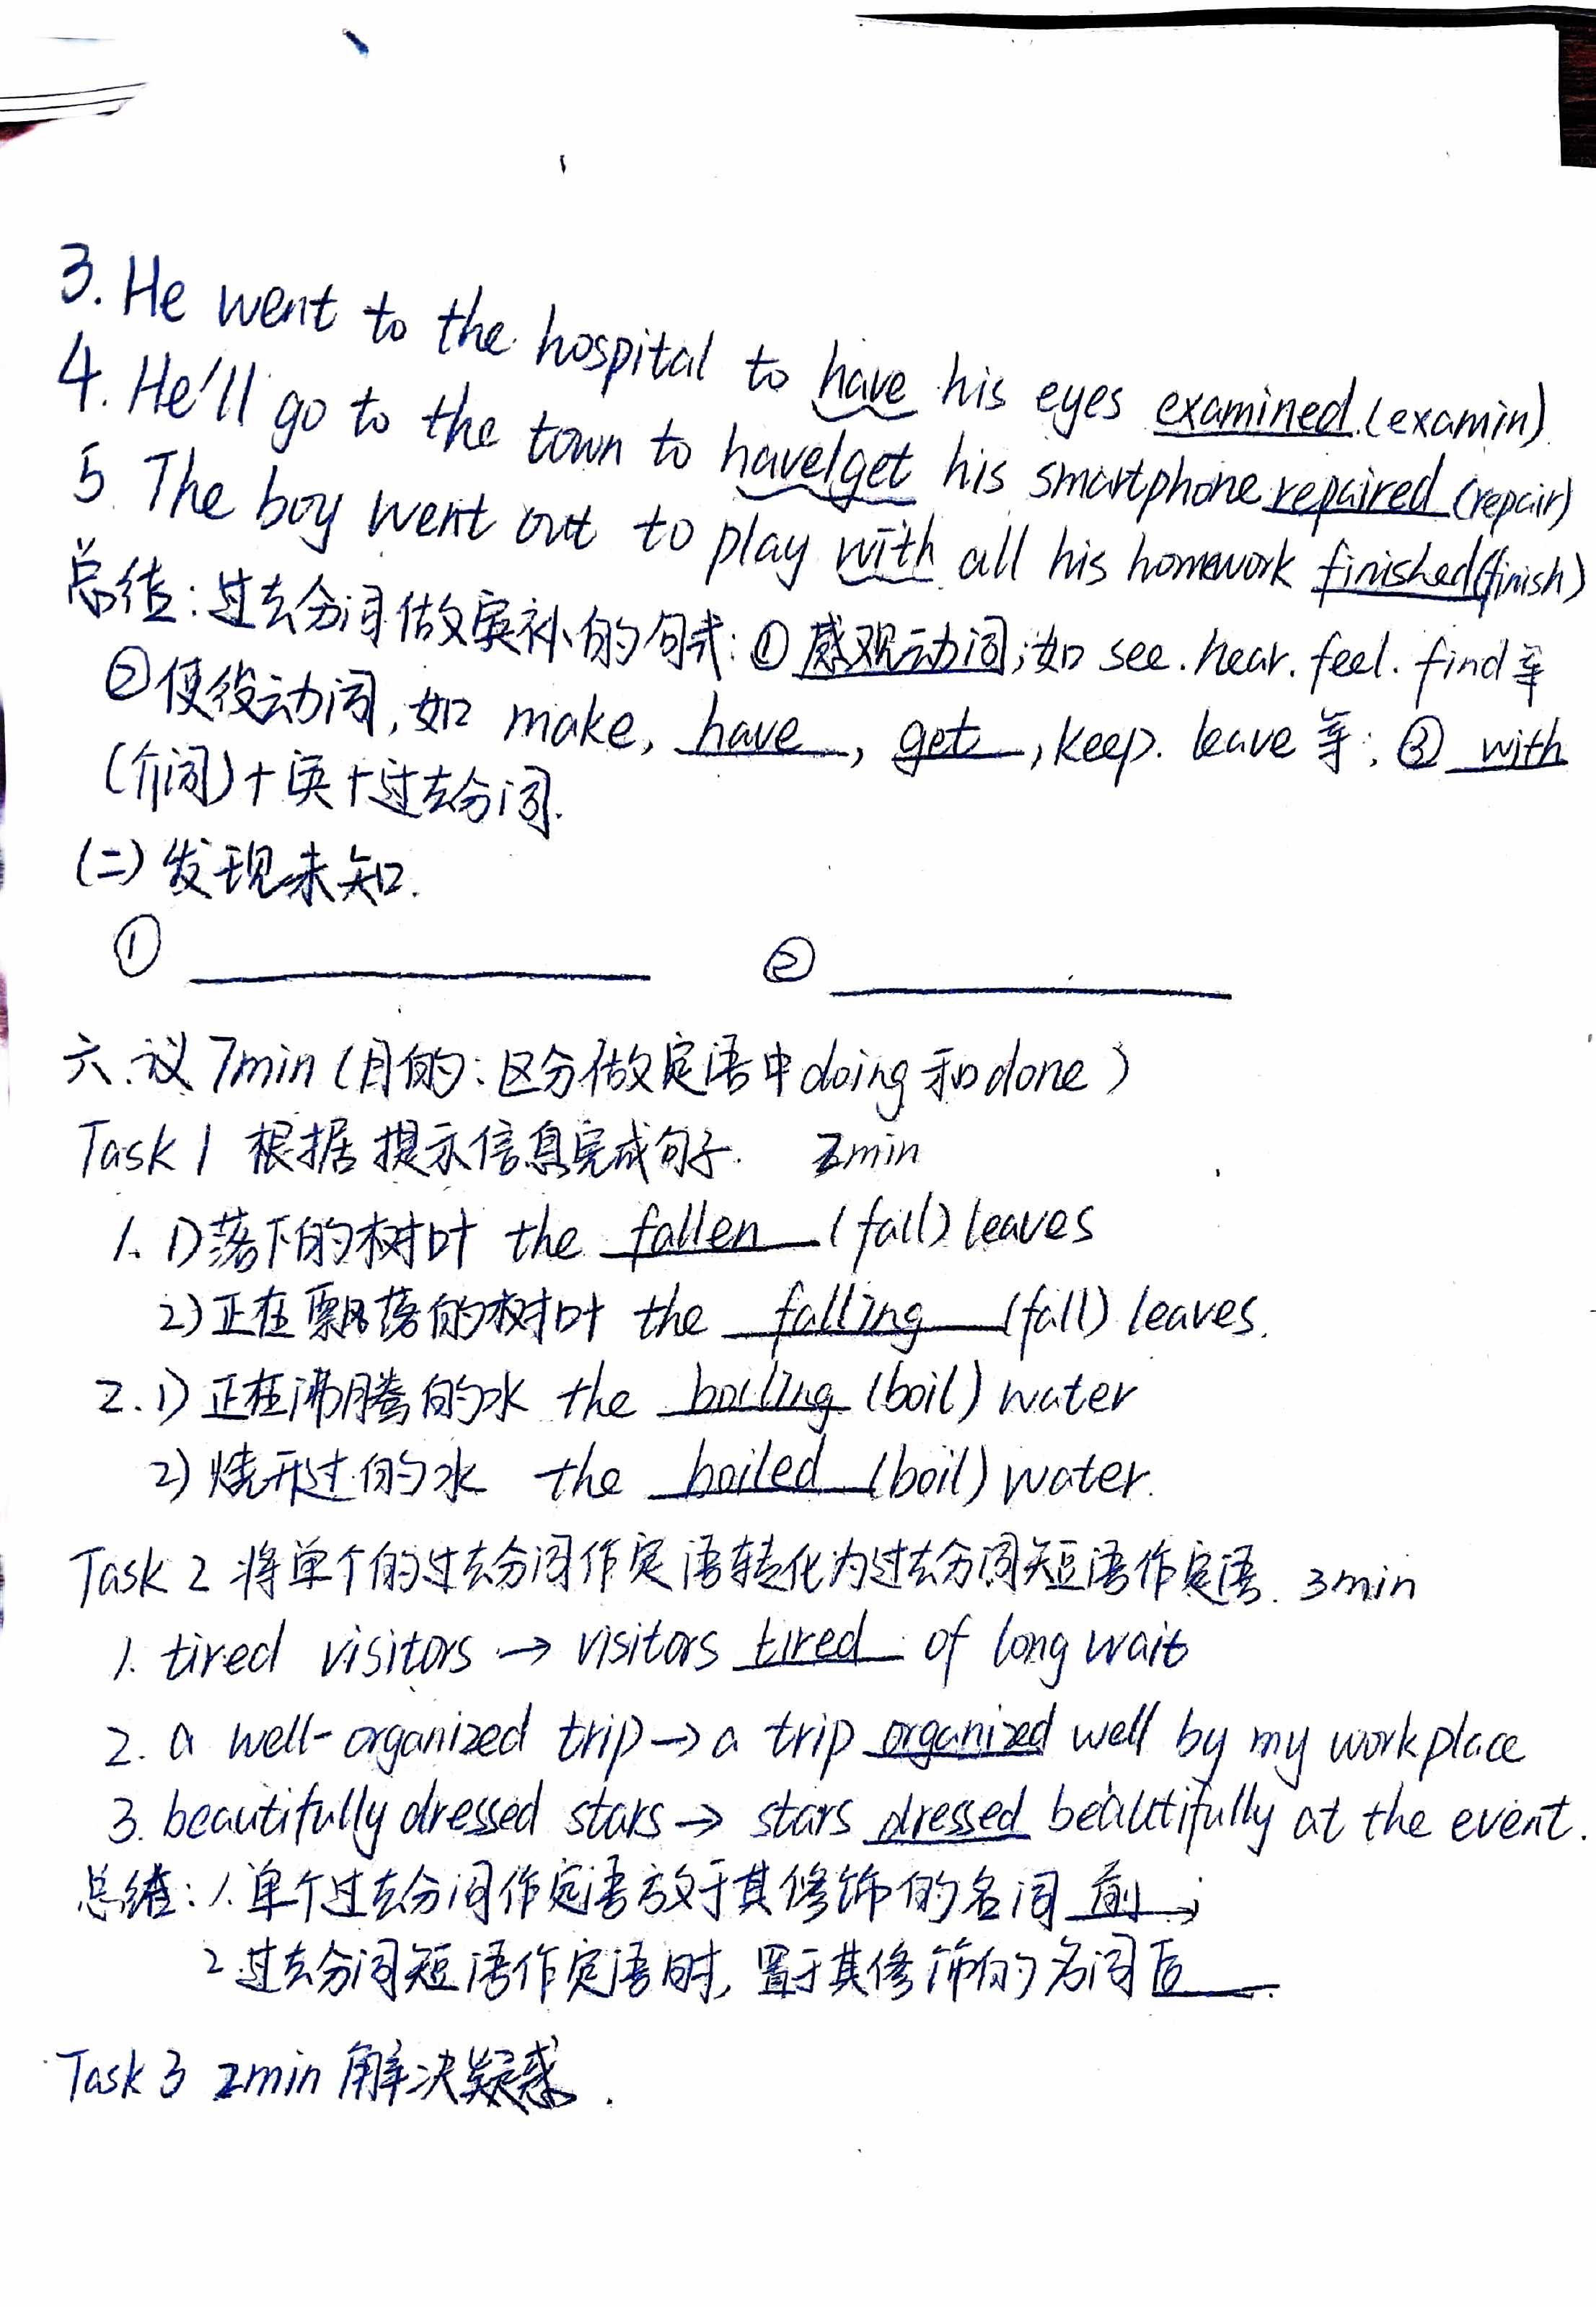 3. He went to the hospital to have his eyes examined.(examin)
4. He'll go to the town to have/get his smartphone repaired (repair)
5. The boy went out to play with all his homework finished(finish)
总结:过去分词做宾补的句式:①感观动词;如 see.hear.feel.find等
②使役动词,如 make, have, get, keep. leave 等; ③ with
(介词)+宾+过去分词.
(二)发现未知.
① ______ ② ______
六.议 7min (目的:区分做定语中doing和done)
Task 1 根据提示信息完成句子. 2min
1. 1)落下的树叶 the fallen (fall) leaves
2)正在飘落的树叶 the falling (fall) leaves.
2. 1)正在沸腾的水 the boiling (boil) water
2)烧开过的水 the boiled (boil) water.
Task 2 将单个的过去分词作定语转化为过去分词短语作定语. 3min
1. tired visitors → visitors tired of long wait
2. a well-organized trip → a trip organized well by my workplace
3. beautifully dressed stars → stars dressed beautifully at the event.
总结:1.单个过去分词作定语放于其修饰的名词 前;
2 过去分词短语作定语时, 置于其修饰的名词后.
Task 3 2min 解决疑惑.